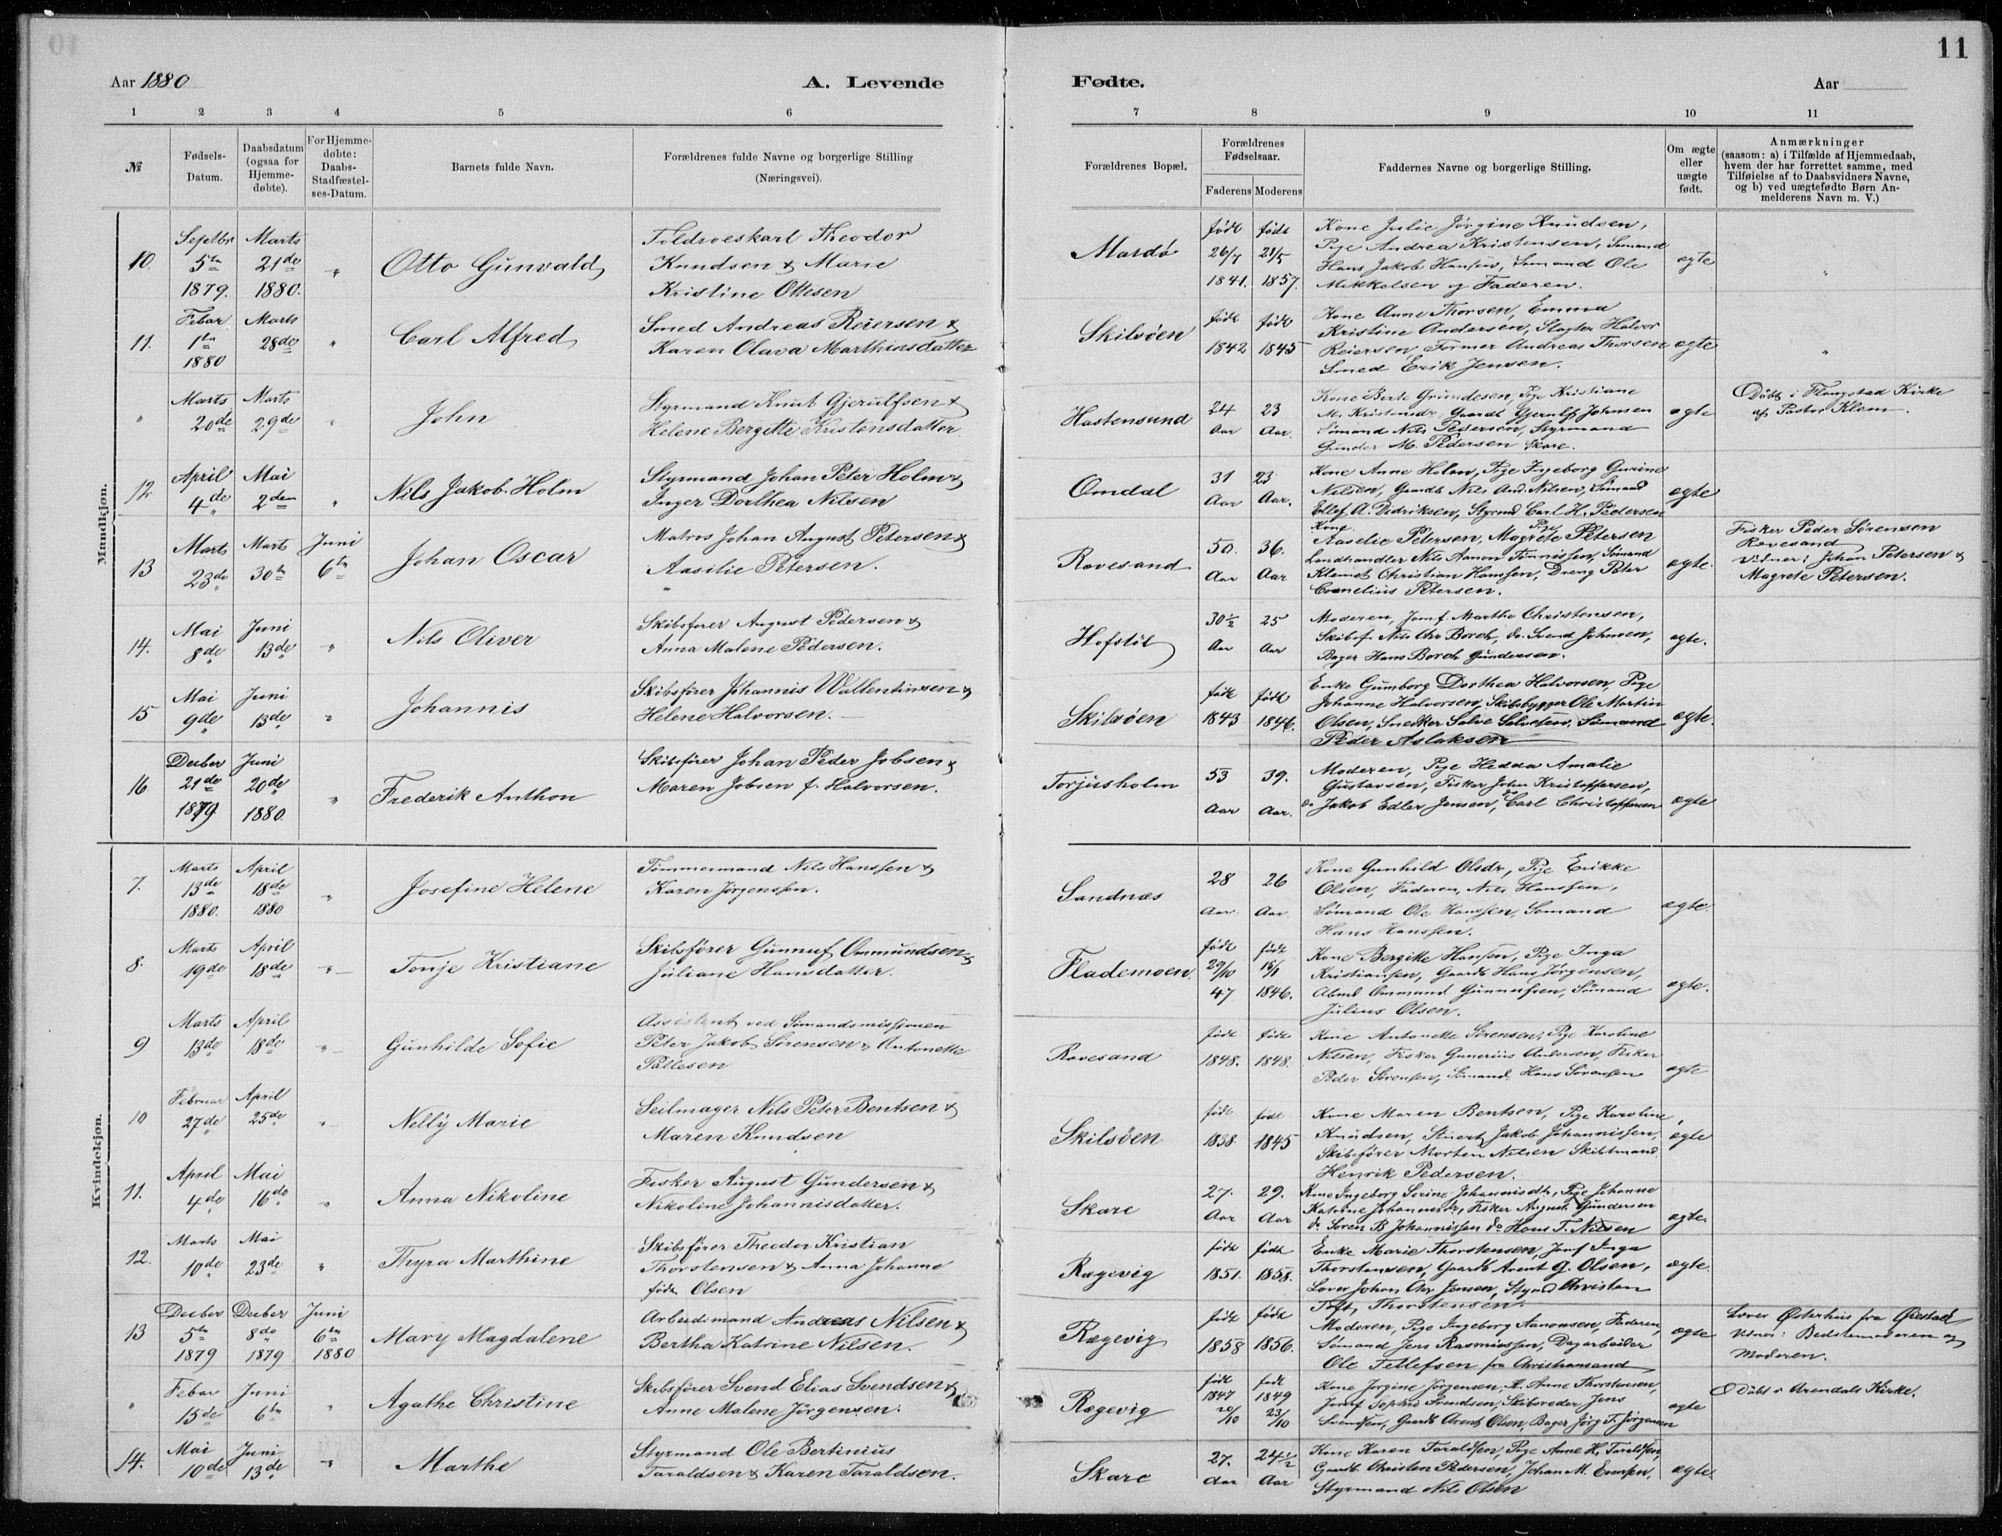 11
Aar 1880
A. Levende
Fødte.
Aar
1 2 3 4 5 6 7 8 9 10 11
№
Fødsels-
Datum.
Daabsdatum
(ogsaa for
Hjemme-
døbte).
For Hjemme-
døbte:
Daabs-
Stadfæstel-
ses-Datum.
Barnets fulde Navn.
Forældrenes fulde Navne og borgerlige Stilling
(Næringsvei).
Forældrenes Bopæl.
Forældrenes
Fødselsaar.
Faderens Moderens
Faddernes Navne og borgerlige Stilling.
Om ægte
eller
uægte
født.
Anmærkninger
(saasom: a) i Tilfælde af Hjemmedaab,
hvem der har forrettet samme, med
Tilføielse af to Daabsvidners Navne,
og b) ved uægtefødte Børn An-
melderens Navn m. V.)
Mandkjøn.
10.
Septbr
5te
1879.
Marts
21de
1880.
"
Otto Gunvald
Toldroeskarl Theodor
Knudsen & Marie
Kristine Ottesen
Mardø
født født
26/7 21/5
1841. 1857.
Kone Julie Jørgine Knudsen,
Pige Andrea Kristensen, Sømand
Hans Jakob Hansen, Sømand Ole
Mikkelsen og Faderen.
ægte
"
11.
Febar
1te
1880
Marts
28de
"
Carl Alfred
Smed Andreas Reiersen &
Karen Olava Marthinsdatter
Skilsöen
født født
1842 1845
Kone Anne Thorsen, Emma
Kristine Andersen, Slagter Halvor
Reiersen, Former Andreas Thorsen
Smed Erik Jensen.
ægte
"
"
Marts
20de
Marts
29de
"
John
Styrmand Knut Gjerulfsen &
Helene Bergette Kristensdatter
Hastensund
24 23
Aar Aar.
Kone Berte Grundesen, Pige Kristiane
M. Kristensdr, Gaardb Gjerulf Johnsen
Sømand Nils Pedersen, Styrmand
Gunder M. Pedersen Skare.
ægte
Døbt i Flangstad Kirke
af Pastor Klem.
12
April
4de
Mai
2den
"
Nils Jakob Holm
Styrmand Johan Peter Holm &
Inger Dorthea Nilsen
Omdal
31 23
Aar Aar.
Kone Anne Holm, Pige Ingeborg Gurine
Nilsen, Gaardb Nils And. Nilsen, Sømand
Ellef A. Didriksen, Styrmd Carl H. Pedersen
ægte
13
Marts
23de
Marts
30te
Juni
6te
Johan Oscar
Matros Johan August Petersen &
Aasilie Petersen.
Revesand
50. 36.
Aar Aar
Kone Aaselie Petersen, Pige Magrete Petersen
Landhandler Nils Aanon Tönnissen, Sømand
Klemet Christian Hanssen, Dreng Peter
Cornelius Petersen.
ægte.
Fisker Peder Sørensen
Revesand
Vidner: Johan Petersen &
Magrete Petersen.
14.
Mai
8de
Juni
13de
"
Nils Oliver
Skibsfører August Pedersen &
Anna Malene Pedersen.
Hofstøl
30½ 25
Aar Aar
Moderen, Jomf Marthe Christensen,
Skibsf. Nils Chr Borch, do. Svend Johnsen,
Bager Hans Borch Gundersen.
ægte.
15
Mai
9de
Juni
13de
"
Johannis
Skibsfører Johannis Wallentinsen &
Helene Halvorsen.
Skilsöen
født født
1843 1846.
Enke Gumborg Dorthea Halvorsen, Pige
Johanne Halvorsen, Skibsbygger Ole Martin
Olsen, Snedker Salve Salvesen, Sømand
Peder Aslaksen
ægte.
16
Decber
21de
1879.
Juni
20de
1880.
"
Frederik Anthon
Skibsfører Johan Peder Jobsen &
Maren Jobsen f. Halvorsen.
Torjusholm
53 39.
Aar Aar.
Moderen, Pige Hedda Amalie
Gustavsen, Fisker John Kristoffersen,
do Jakob Edler Jensen, do Carl Christoffersen
ægte
Kvindekjøn.
7.
Marts
13de
1880.
April
18de
1880
"
Josefine Helene
Tømmermand Nils Hanssen &
Karen Jørgenssen.
Sandnæs
28 26
Aar. Aar.
Kone Gunhild Olsdr, Pige Erikke
Olsen, Faderen, Nils Hanssen,
Sømand Ole Hanssen, Sømand
Hans Hanssen.
ægte.
8.
Marts
19de
April
18de
"
Tonje Kristiane
Skibsfører Gunnuf Ommundsen &
Juliane Hansdatter.
Flademoen.
født født
29/10 18/1
47 1846.
Kone Bergitte Hansen, Pige Inga
Kristiansen, Gaardb Hans Jørgensen,
Ommund Gunnufsen, Sømand
Julius Olsen.
ægte.
9
Marts
13de
April
18de
"
Gunhilde Sofie
Assistent ved Sømandsmissjonen
Peter Jakob Sørensen & Antonette
Pallesen
Revesand
født født
1848. 1848.
Kone Antonette Sørensen, Pige Karoline
Nilsen, Fisker Gunerius Andersen, Fisker
Peder Sørensen, Sømand Hans Sørensen
ægte
10
Februar
27de
April
25de
"
Nelly Marie
Seilmager Nils Peter Bentsen &
Maren Knudsen
Skilsöen
født født
1838 1845
Kone Maren Bentsen, Pige Karoline
Knudsen, Stuert Jakob Johannissen,
Skibsfører Morten Nilsen Skibtmand
Henrik Pedersen.
ægte
11.
April
4de
Mai
16de
"
Anna Nikoline
Fisker August Gundersen &
Nikoline Johannisdatter.
Skare
27. 29.
Aar Aar
Kone Ingeborg Serine Johannisdtr, Pige Johanne
Katrine Johannisdr, Fisker August Gundersen
do. Søren B. Johannissen do Hans T. Nilsen
ægte.
12.
Marts
10de
Mai
23de
"
Thyra Marthine
Skibsfører Theodor Kristian
Thorstensen & Anna Johanne
født Olsen
Rægevig
født født
1851. 1858.
Enke Marie Thorstensen, Jomf Inga
Thorstensen, Gaardb Arent G. Olsen,
Lærer Johan Chr Jensen, Styrmd Christian
Toft Thorstensen.
ægte.
13
Decber
5te
1879
Decber
8de
1879
Juni
6te
1880
Mary Magdalene
Arbeidsmand Andreas Nilsen &
Bertha Katrine Nilsen.
Rægevig
født født
1858 1856.
Moderen, Pige Ingeborg Aanonsen, Faderen,
Sømand Jens Rasmussen, Dagarbeider
Ole Tellefsen fra Christiansand
ægte
Lærer Østerhus fra Øiestad
Vidner: Bedstemoderen og
Moderen.
"
Febar
15de
Juni
6te
"
Agathe Christine
Skibsfører Svend Elias Svendsen &
Anne Malene Jørgensen.
Rægevig
født født
1847 1849
20/10 23/10
Kone Jorgine Jørgensen, Anne Thorstensen,
Jomf Sophie Svendsen, Skibsreder Jens
Svendsen, Gaardb Arent Olsen, Bager Jörg T. Jörgensen
ægte
Døbt i Arendals Kirke.
14.
Mai
10de
Juni
13de
"
Marthe
Styrmand Ole Bertinius
Taraldsen & Karen Taraldsen.
Skare
27. 24½
Aar Aar
Kone Karen Taraldsen, Pige Anne H. Taraldsen,
Gaardb. Christen Pedersen, Johan M. Evensen,
Styrmand Nils Olsen
ægte.